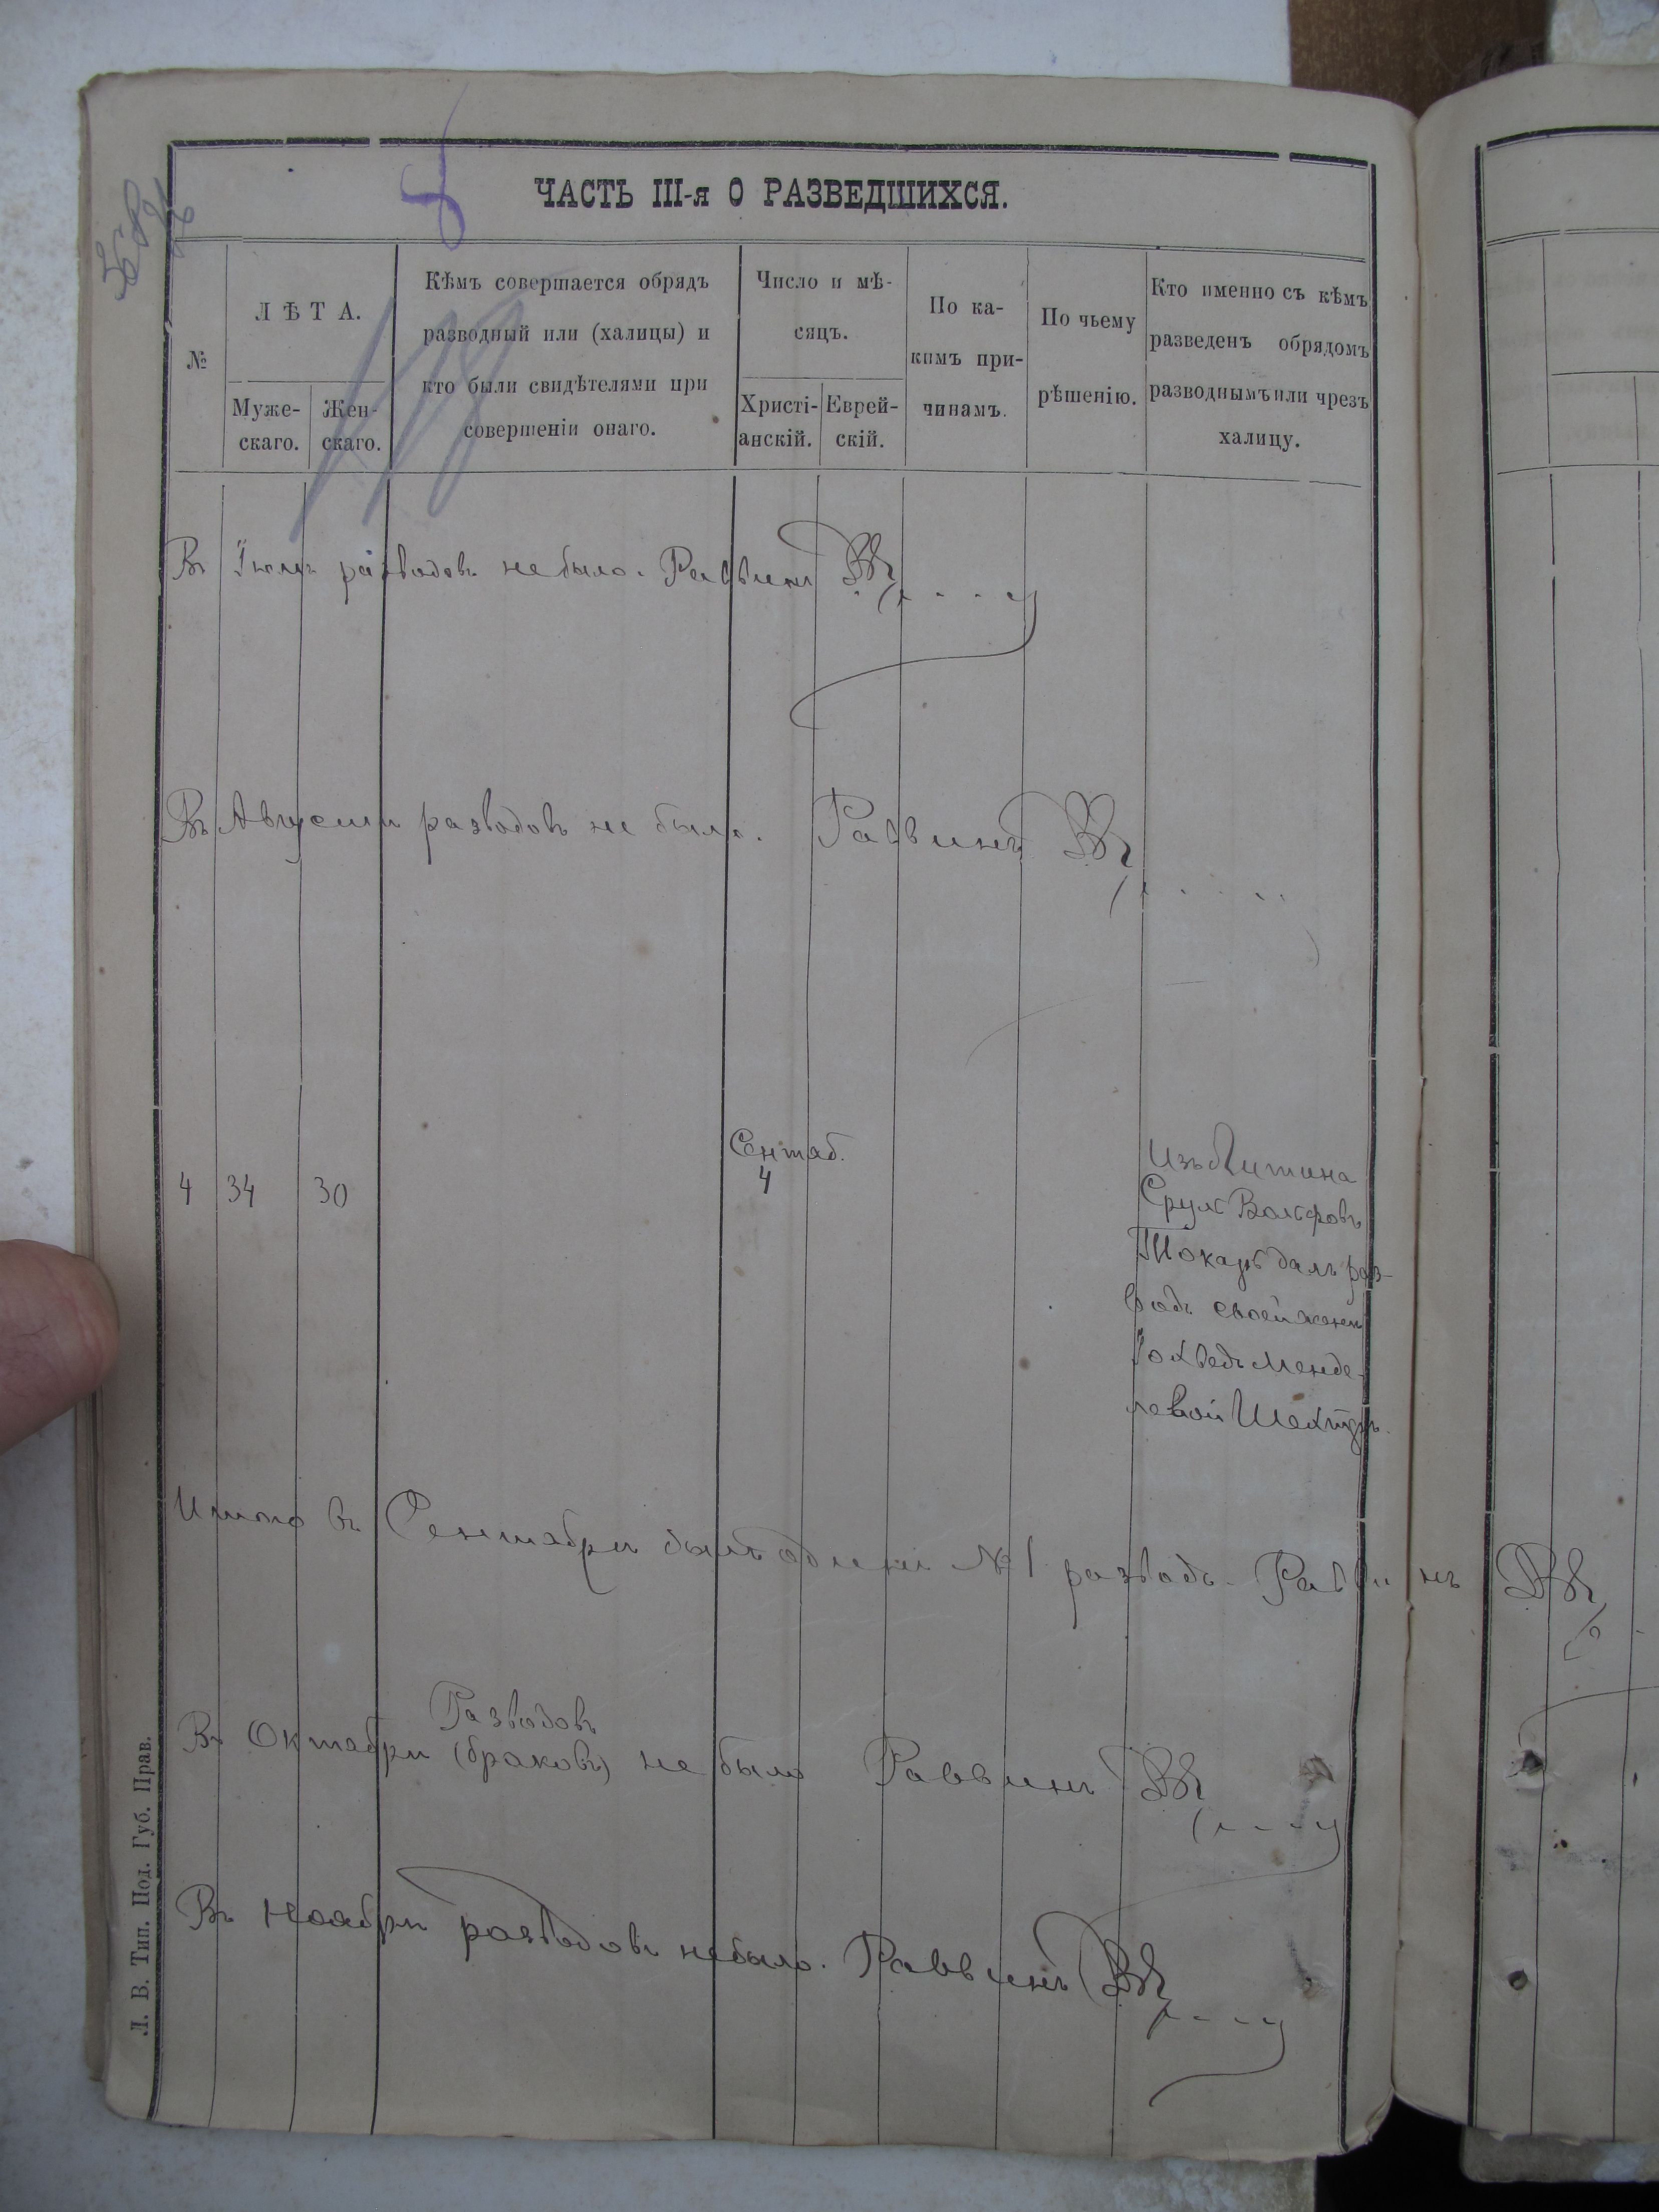 ЧАСТЬ III-я О РАЗВЕДШИХСЯ.
№
ЛѢТА.
Муже-
скаго.
Жен-
скаго.
Кѣмъ совершается обрядъ
разводный или (халицы) и
кто были свидѣтелями при
совершеніи онаго.
Число и мѣ-
сяцъ.
Христі-
анскій.
Еврей-
скій.
По ка-
кимъ при-
чинамъ.
По чьему
рѣшенію.
Кто именно съ кѣмъ
разведенъ обрядомъ
разводнымъ или чрезъ
халицу.
Въ Іюлѣ разводовъ не было. Раввинъ
Въ Августѣ разводовъ не было. Раввинъ
4 34 30
Сентяб.
4
Изъ Литина
Сруль Вольфовъ
Токарь далъ раз-
водъ своей женѣ
Іохведъ Менде-
левой Шехтеръ.
Итого въ Сентябрѣ былъ одинъ №1 разводъ. Раввинъ
Разводовъ
Въ Октябрѣ (браковъ) не было Раввинъ
Въ Ноябрѣ разводовъ не было. Раввинъ
Л. В. Тип. Под. Губ. Прав.